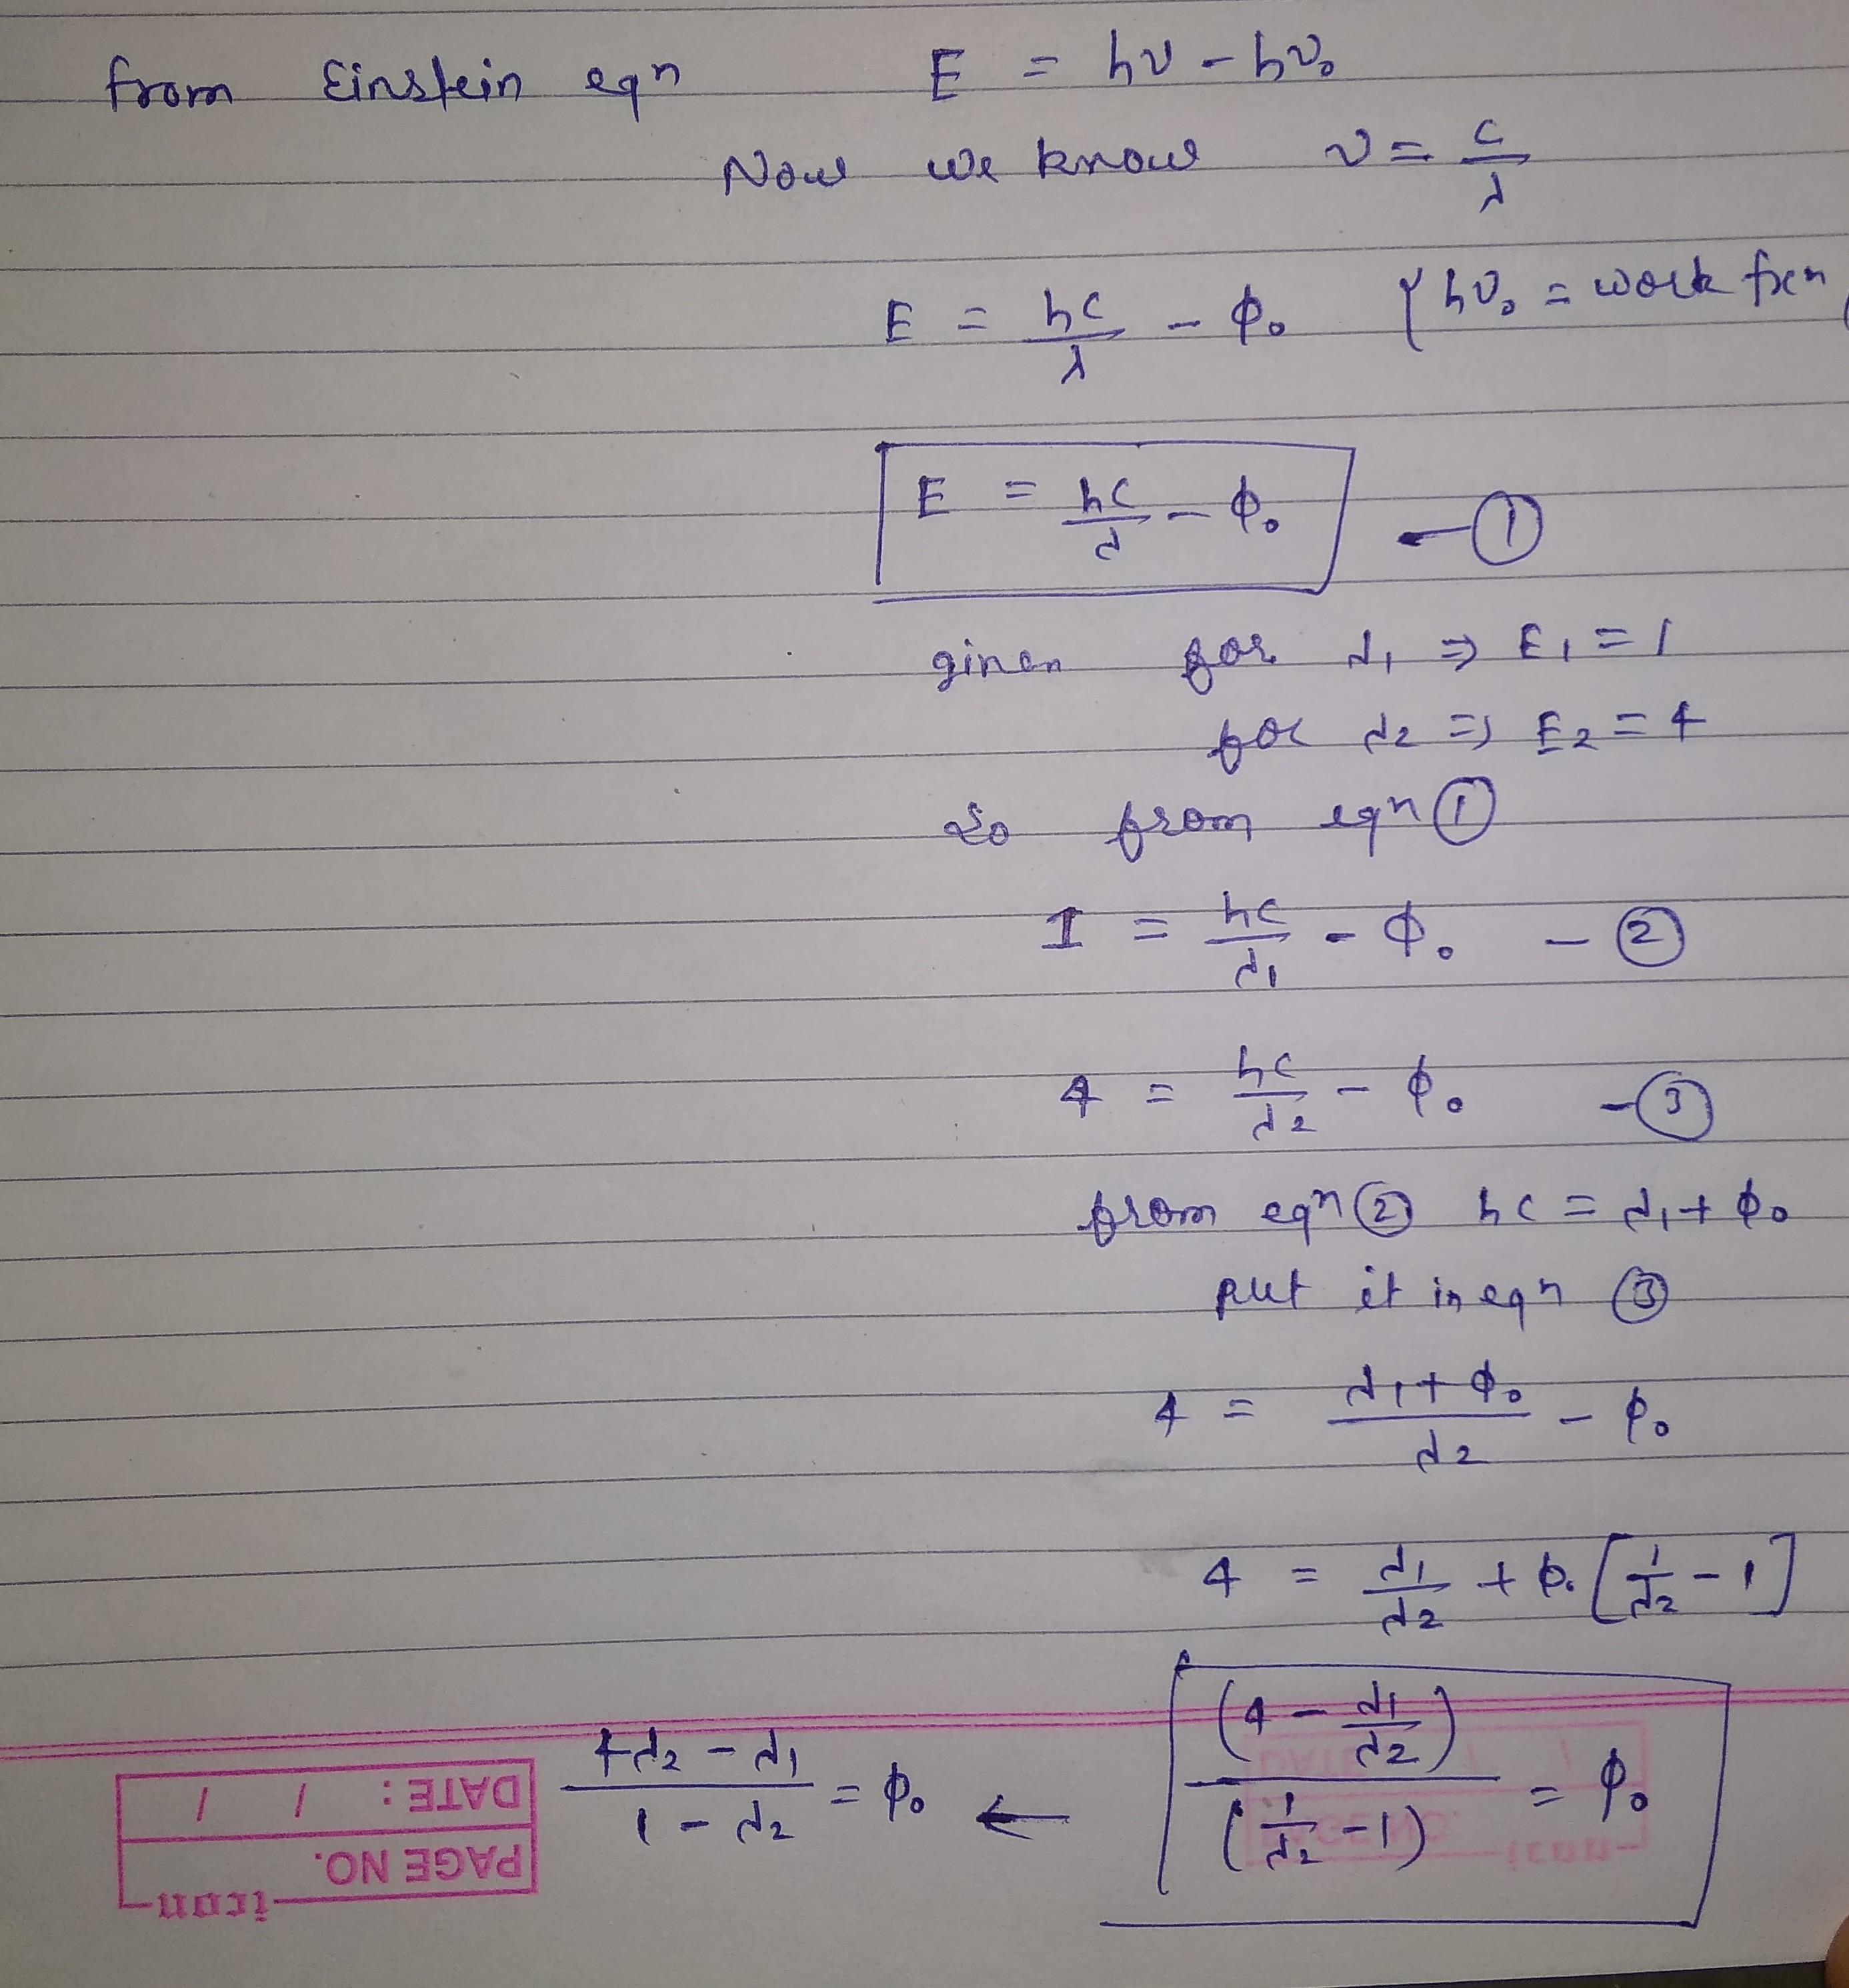 from Einstein eqn E = hν - hν₀
Now we know ν = c/λ
E = hc/λ - ϕ₀ {hν₀ = work fxn
E = hc/λ - ϕ₀ ← ①
given for λ₁ ⇒ E₁ = 1
for λ₂ ⇒ E₂ = 4
so from eqn ①
1 = hc/λ₁ - ϕ₀ - ②
4 = hc/λ₂ - ϕ₀ - ③
from eqn ② hc = λ₁ + ϕ₀
put it in eqn ③
4 = (λ₁ + ϕ₀)/λ₂ - ϕ₀
4 = λ₁/λ₂ + ϕ₀ [1/λ₂ - 1]
(4 - λ₁/λ₂)/(1/λ₂ - 1) = ϕ₀
(4λ₂ - λ₁)/(1 - λ₂) = ϕ₀ ←
icon
PAGE NO.
DATE: / /